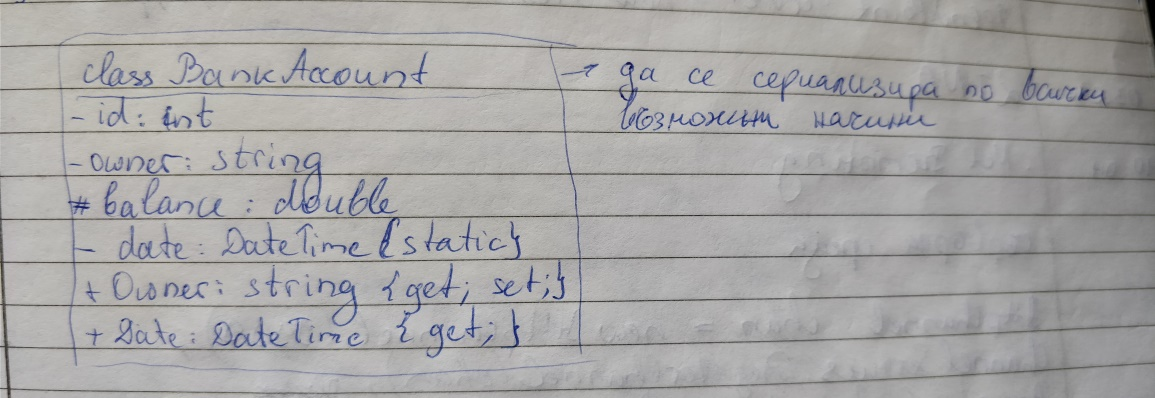 class BankAccount
- id: int
- owner: string
# balance: double
- date: DateTime {static}
+ Owner: string {get; set;}
+ Date: DateTime {get;}
→ да се сериализира по всички
възможни начини